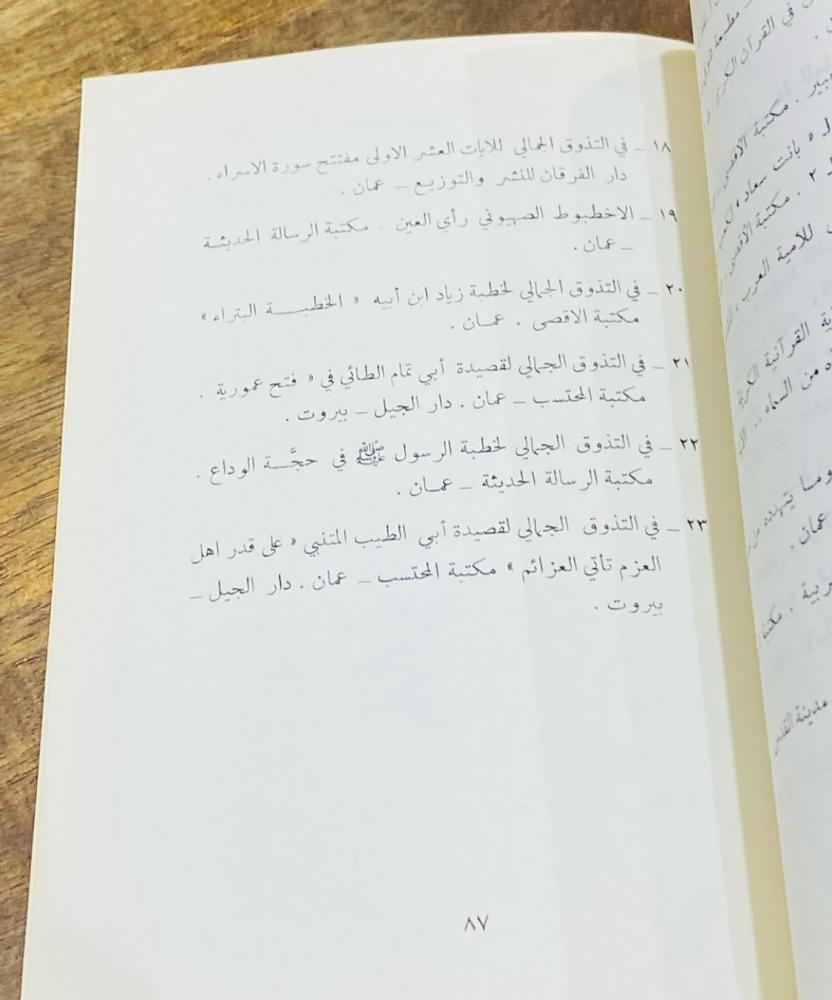 ١٨ _ في التذوق الجمالي للايات العشر الاولى مفتتح سورة الاسراء .
دار الفرقان للنشر والتوزيع _ عمان .
١٩ _ الاخطبوط الصهيوني رأي العين . مكتبة الرسالة الحديثة
_ عمان .
٢٠ _ في التذوق الجمالي لخطبة زياد ابن أبيه « الخطبة البتراء »
مكتبة الاقصى . عمان .
٢١ _ في التذوق الجمالي لقصيدة أبي تمام الطائي في « فتح عمورية .
مكتبة المحتسب _ عمان . دار الجيل _ بيروت .
٢٢ _ في التذوق الجمالي لخطبة الرسول ﷺ في حجَّة الوداع .
مكتبة الرسالة الحديثة _ عمان .
٢٣ _ في التذوق الجمالي لقصيدة أبي الطيب المتنبي « على قدر اهل
العزم تأتي العزائم » مكتبة المحتسب _ عمان . دار الجيل _
بيروت .
٨٧
في القرآن الكريم
مكتبة الأقصى
« بانت سعاد »
٢ . مكتبة الأقصى
للامية العرب
القرآنية الكريمة
من السماء ...
وما يتهدده من
عمان .